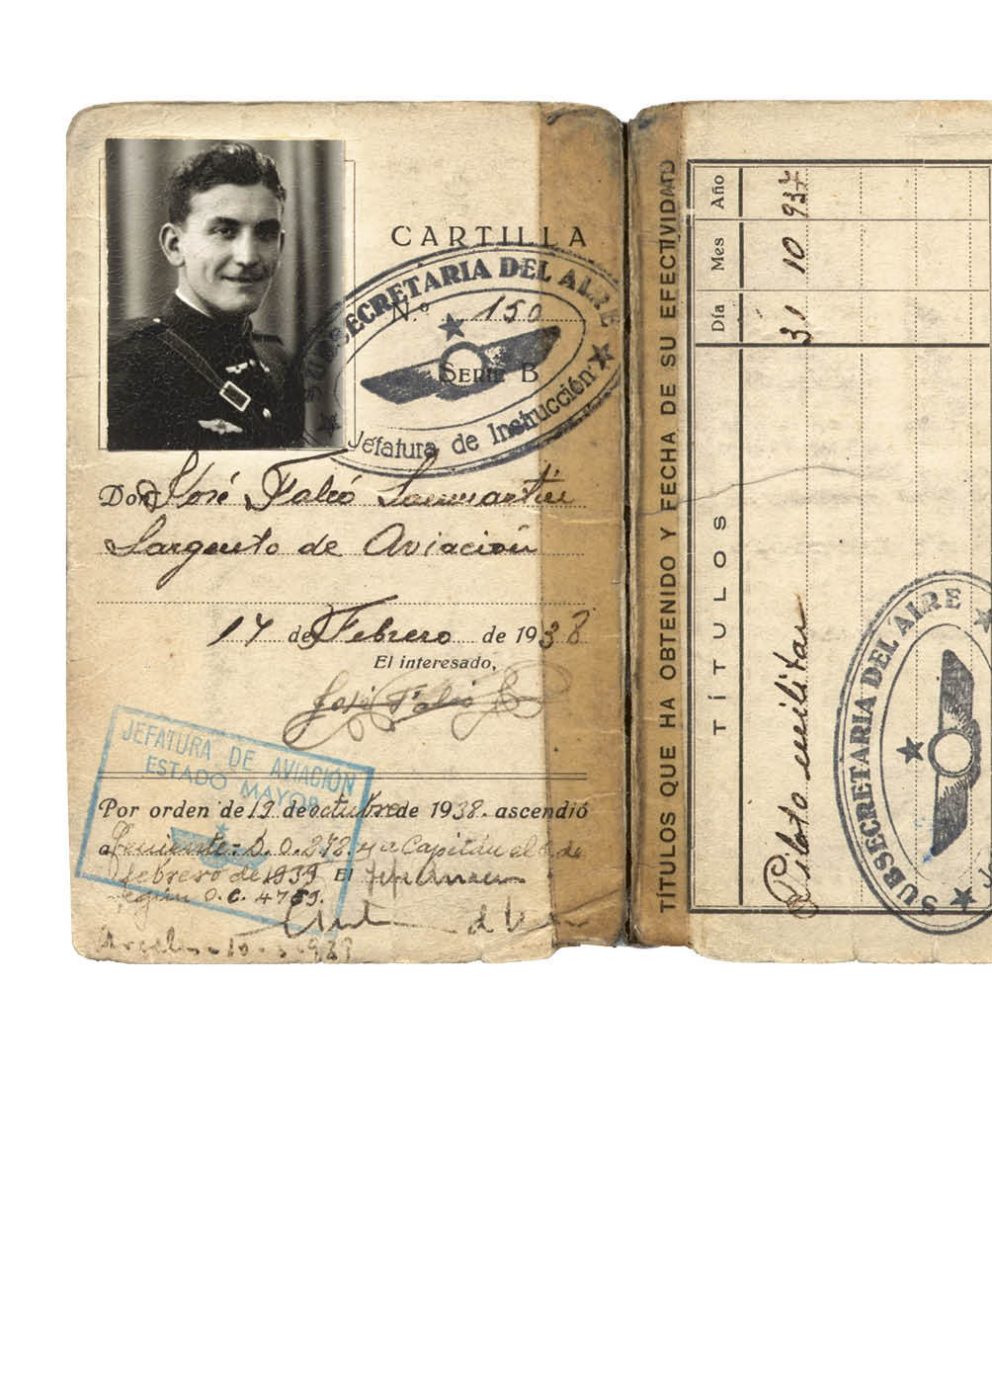 CARTILLA
N.º 150
SERIE B
SUBSECRETARIA DEL AIRE
Jefatura de Instrucción
Don José Falcó Sanmartín
Sargento de Aviación
17 de Febrero de 1938
El interesado,
José Falcó
JEFATURA DE AVIACIÓN
ESTADO MAYOR
Por orden de 19 de octubre de 1938. ascendió
a Teniente = D. O. 278 y a Capitán el de
febrero de 1939 El
según O. C. 4753.
10-3-939
TÍTULOS QUE HA OBTENIDO Y FECHA DE SU EFECTIVIDAD
TÍTULOS Día Mes Año
Piloto militar 31 10 937
SUBSECRETARIA DEL AIRE